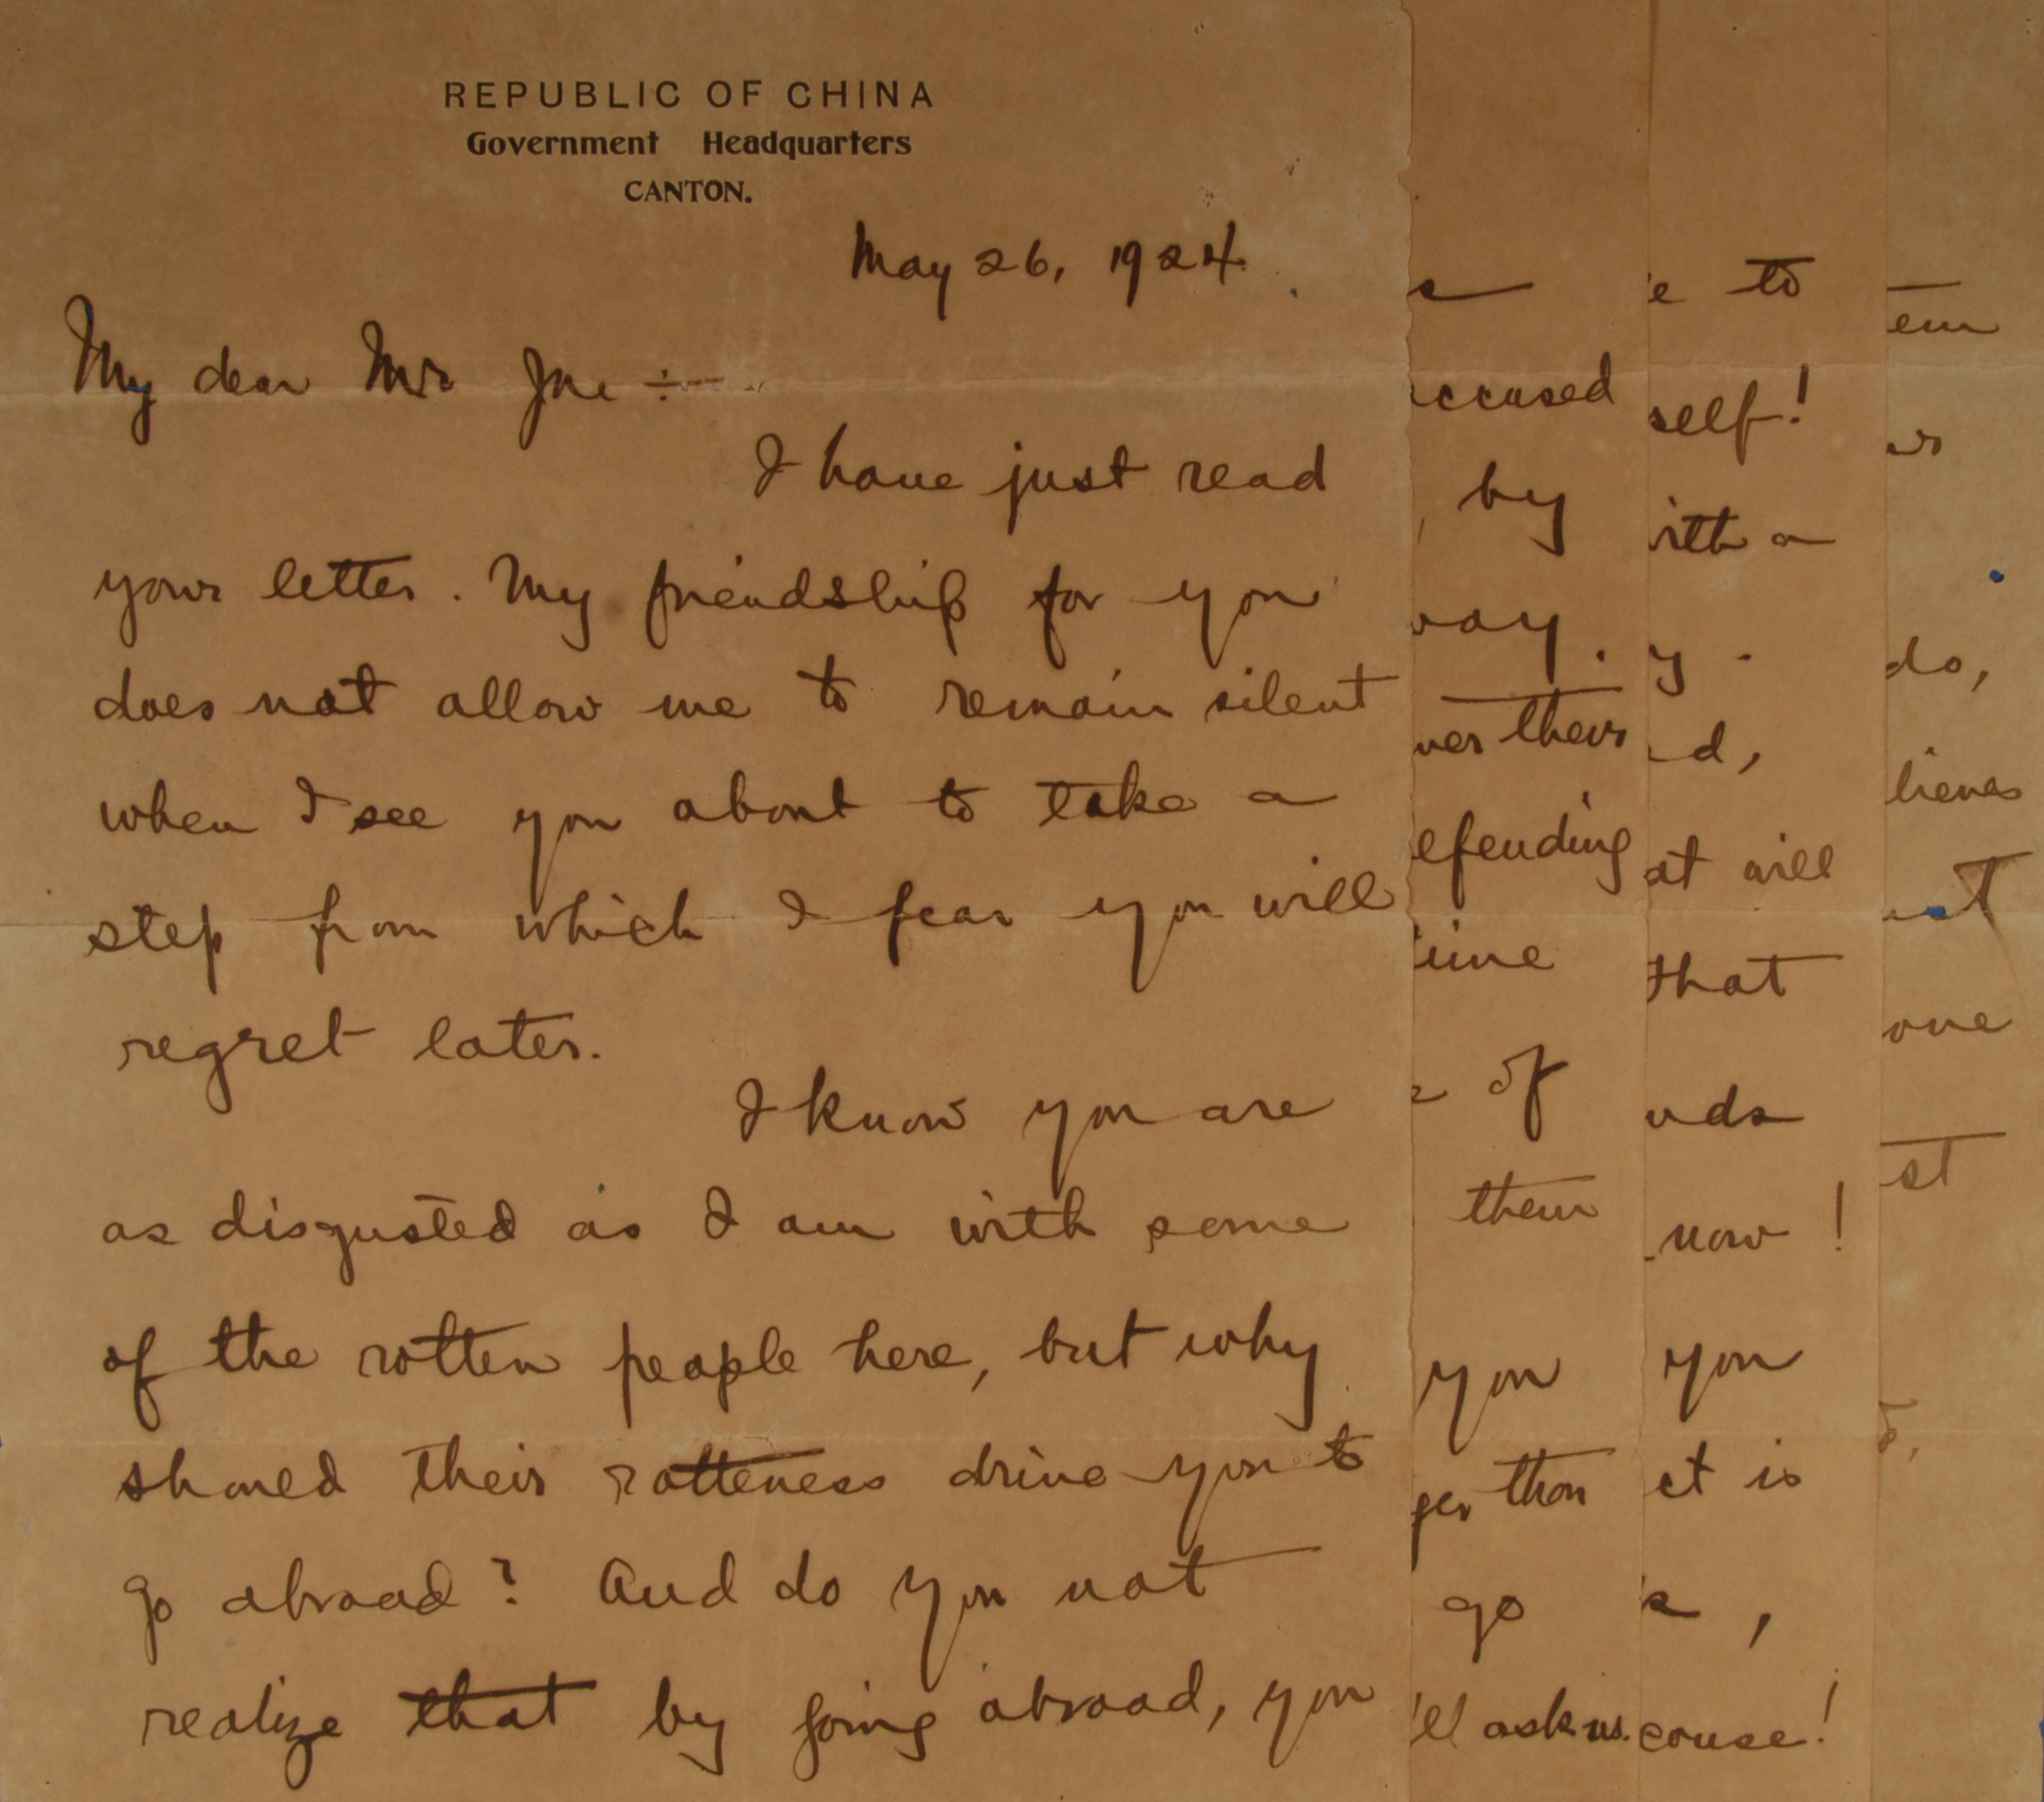 REPUBLIC OF CHINA
Government Headquarters
CANTON.
May 26, 1924.
My dear Mr
I have just read
your letter. My friendship for you
does not allow me to remain silent
when I see you about to take a
step from which I fear you will
regret later.
I know you are
as disgusted as I am with some
of the rotten people here, but why
should their rotteness drive you to
go abroad? And do you not
realize that by going abroad, you
ccused
, by
way.
ver their
efending
time
of
them
you
ger than
go
'll ask us.
e to
self!
ith a
y.
d,
at will
that
nds
now!
you
ct is
,
cause!
em
do,
lieves
one
st